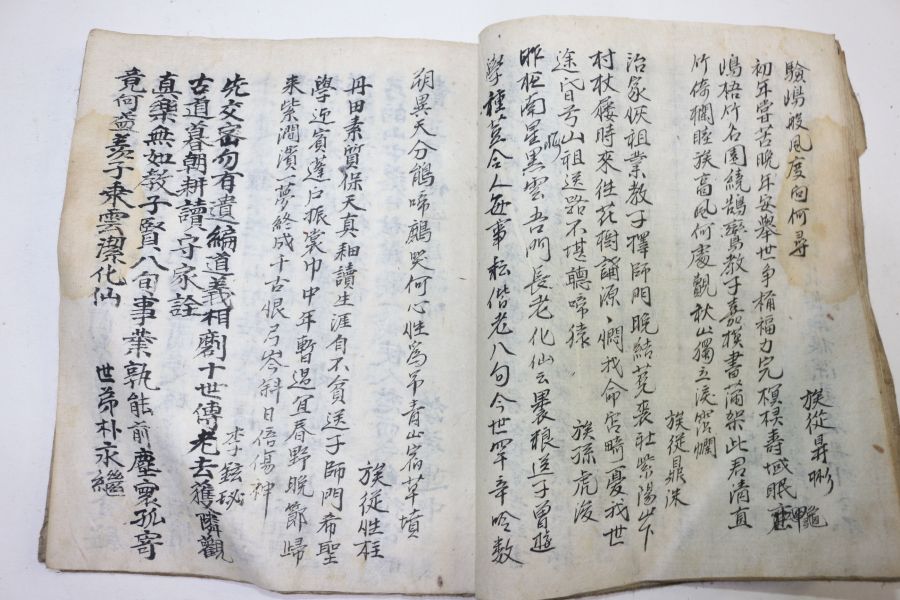 驗塢般風度向何尋
族從昇彬
初年甞苦晚年安舉世爭稱福力完榠棂壽域眠龜
塢梧竹名園繞鵠鸞教子嘉模書滿架此君清直
竹倚欄睦族高風何處覿秋山獨立淚穿爛
族從鼎洙
治家恢祖業教子擇師門晚結菟裘社紫陽山下
村杖屨時來往花樹酌源憫我命宮畸憂我世
途昏弓山祖送路不堪聽啼猿
族孫虎浚
昨夜南星黑雲吾門長老化仙云裹粮送子曾遊
學種荳令人每事耘偕老八旬今世罕辛吟数
朔異天分鵲啼鷓哭何心性爲吊青山宿草墳
族從性柱
丹田素質保天真細讀生涯自不貧送子師門希聖
學近賓蓬戶振裳巾中年暫過宜春野晚節歸
来紫澗濱一夢終成千古恨弓岑斜日倍傷神
李鉉珌
先交密勿有遺編道義相劘十世傳老去獲聯觀
古道暮朝耕讀守家詮
真樂無如教子賢八旬事業孰能前塵寰孤寄
竟何益羨子乘雲潔化仙
世弟朴永繼